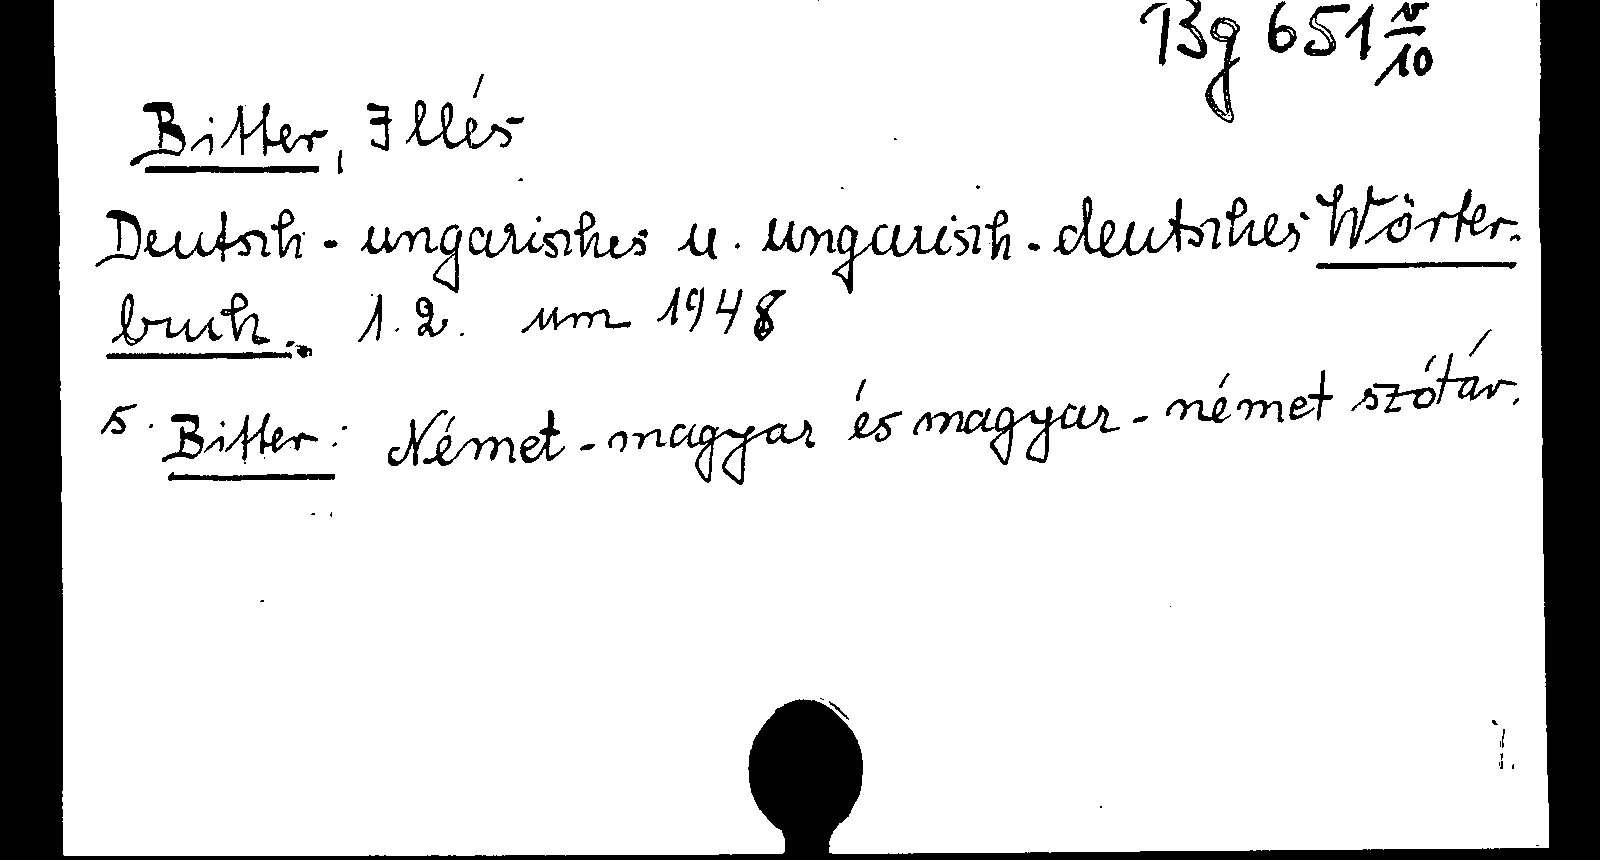 Bg 651 v/10
Bitter, Illés
Deutsch-ungarisches u. ungarisch-deutsches Wörter-
buch. 1.2. um 1948
s. Bitter: Német-magyar és magyar-német szótár.
1.